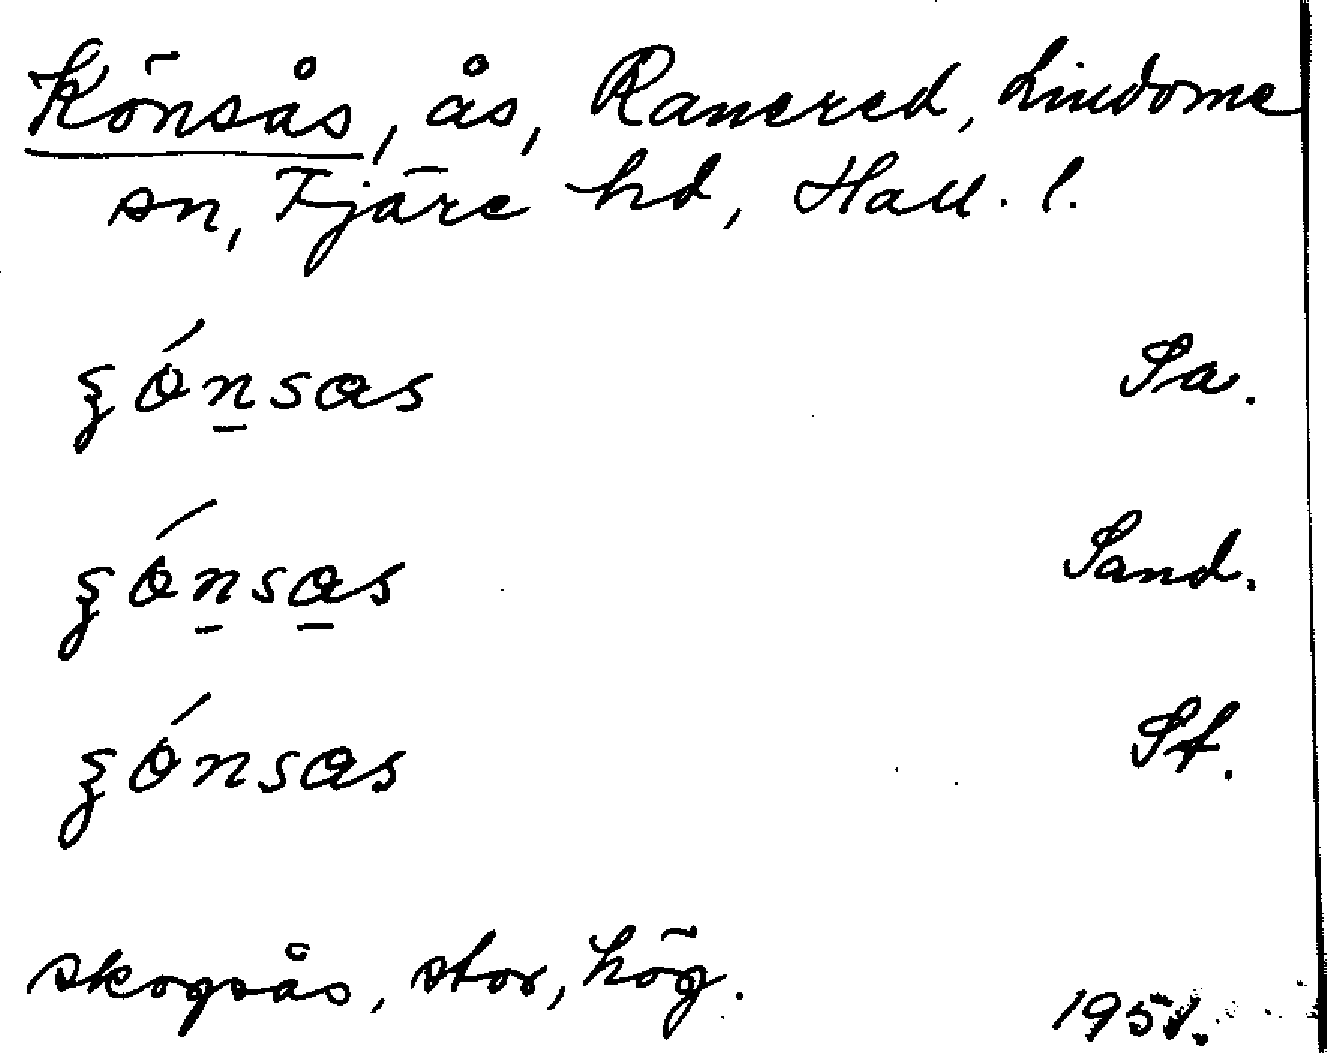 Könsås, ås, Ranered, Lindome
sn, Fjäre hd, Hall. l.
ʒónsas Sa.
ʒónsas Sand.
ʒónsas St.
skogsås, stor, hög.
1951.